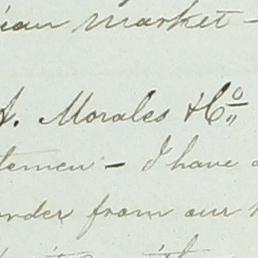 ean market -
A. Morales & Co,,
temen - I have
order from our